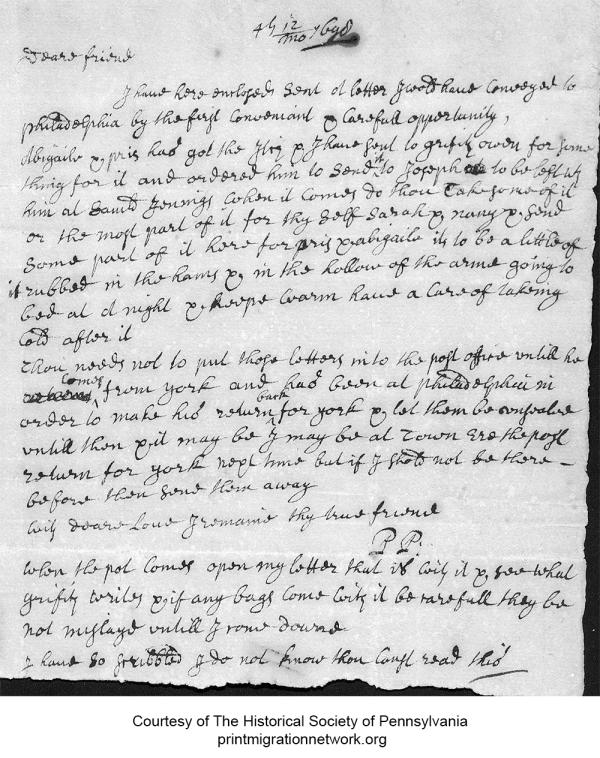 4th 12/mo 1698
Deare friend
I have here enclosed sent a letter I wold have Conveyed to
philadelphia by the first Conveniant & Carefull oppertunity,
Abigaile & pris had got the Itig & I have sent to grifith owen for some
thing for it and ordered him to send it to Joseph to be left wth
him at Samll Jenings when it comes do thou Take some of it
or the most part of it for thy self Sarah & nany & send
some part of it here for pris & abigaile its to be a little of
it rubbed in the hams & in the hollow of the arme going to
bed at a night & keepe warm have a Care of takeing
Cold after it
Thou needs not to put those letters in to the post office untill he
Comes from york and had been at philadelphia in
order to make his return back for york & let them be
untill then & it may be I may be at Town Ere the post
return for york next time but if I shold not be there
before then send them away
with deare Love I remaine thy true friend
P P
when the pot comes open my letter that is with it & see what
grifith writes & if any bags come with it be carefull they be
not mislayd untill I come downe
I have so scribbled I do not know thou canst read this
Courtesy of The Historical Society of Pennsylvania
printmigrationnetwork.org